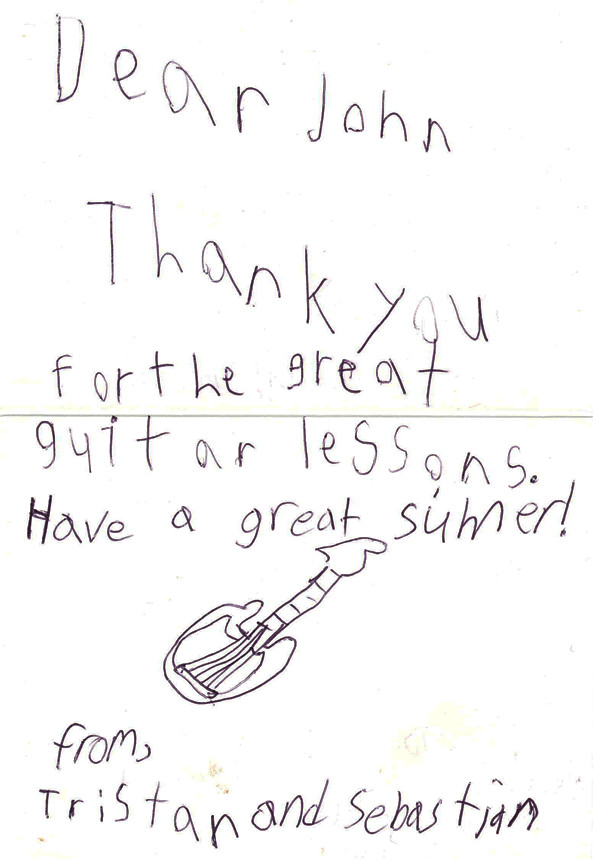 Dear John
Thank you
for the great
guitar lessons.
Have a great sumer!
from,
Tristan and Sebastian